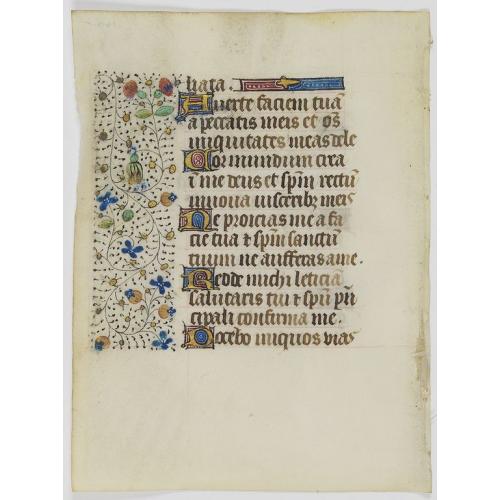 liata .
Auerte faciem tuā
a peccatis meis et oēs
iniquitates meas dele
Cor mundum crea
ī me deus et spm̄ rectū
innoua in uisceribꝫ meis
Ne proicias me a fa
cie tua ⁊ spm̄ sanctū
tuum ne aufferas a me .
Redde michi leticiā
salutaris tui ⁊ spū prī
cipali confirma me .
Docebo iniquos vias